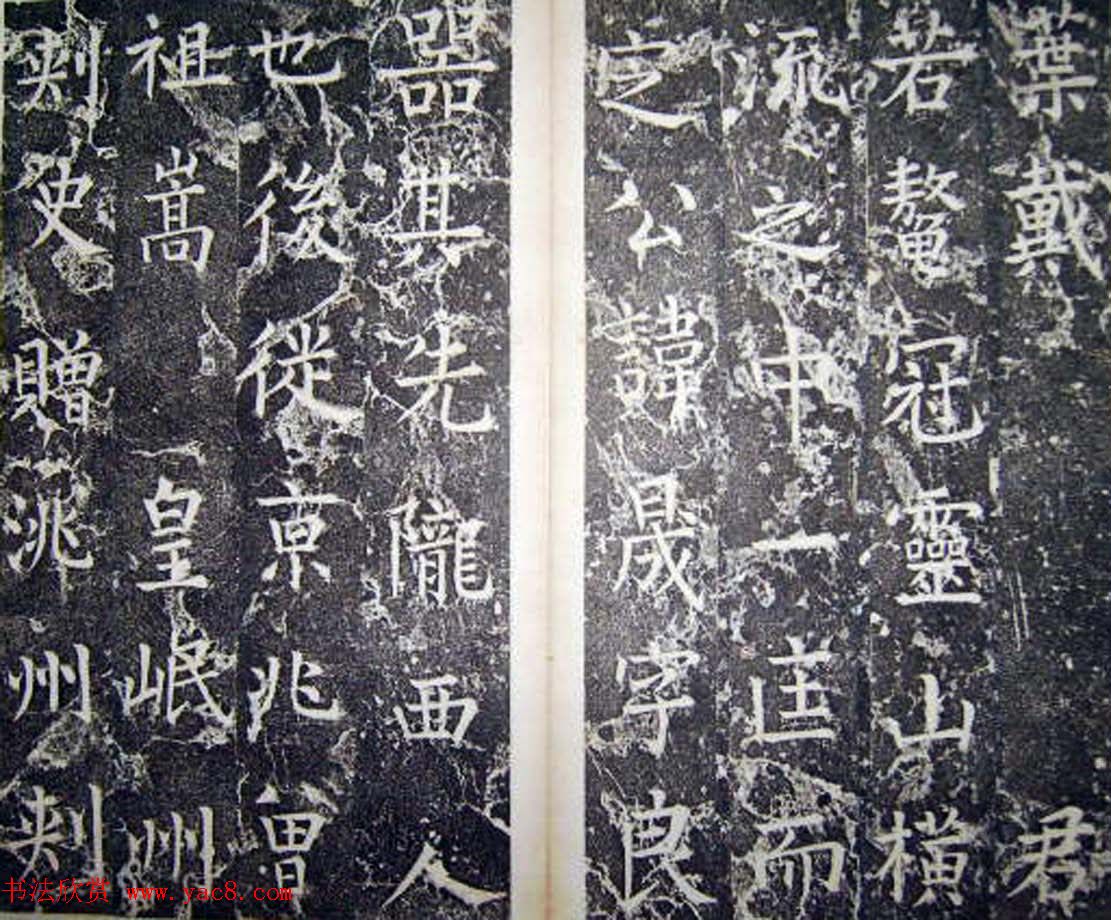 葉戴君
若鼇冠靈山橫
流之中一匡而
定公諱晟字良
器其先隴西人
也後從京兆曾
祖嵩皇岷州
刺史贈洮州刺
书法欣赏 www.yac8.com